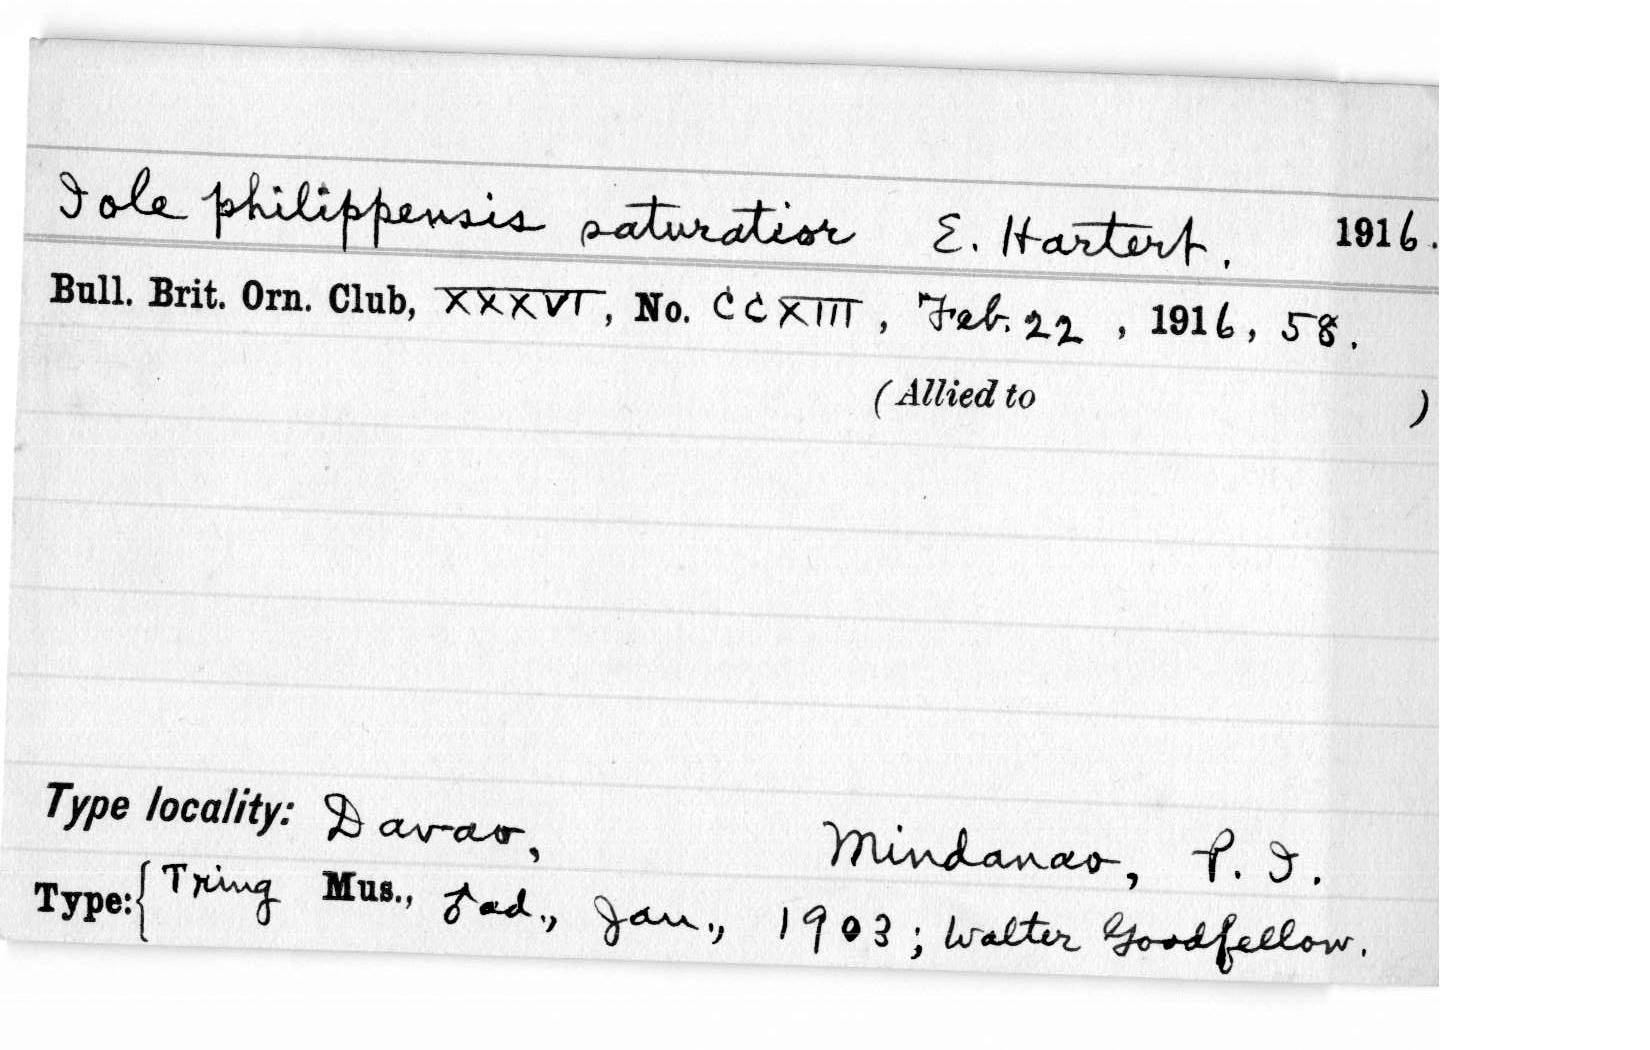 Iole philippensis saturatior E. Hartert. 1916.
Bull. Brit. Orn. Club, XXXVI, No. CCXIII, Feb. 22, 1916, 58.
(Allied to )
Type locality: Davao, Mindanao, P. I.
Type: { Tring Mus., ad., Jan., 1903; Walter Goodfellow.